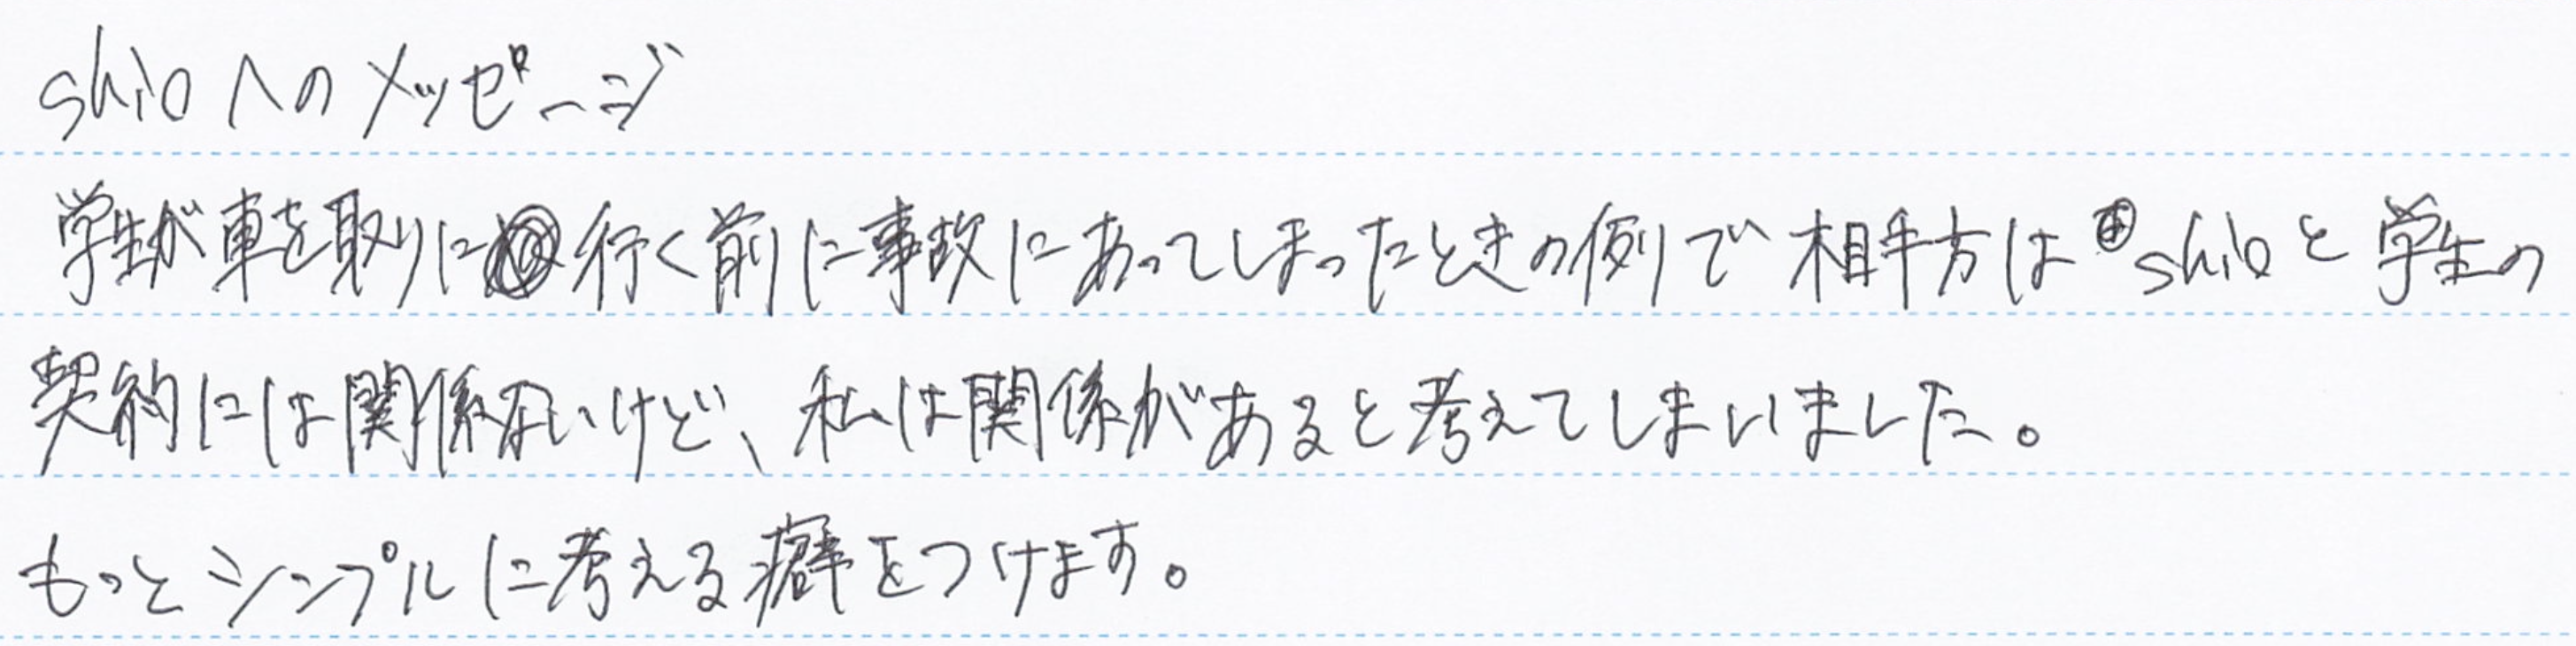 shioへのメッセージ
学生が車を取りに行く前に事故にあってしまったときの例で相手方はshioと学生の
契約には関係ないけど、私は関係があると考えてしまいました。
もっとシンプルに考える癖をつけます。